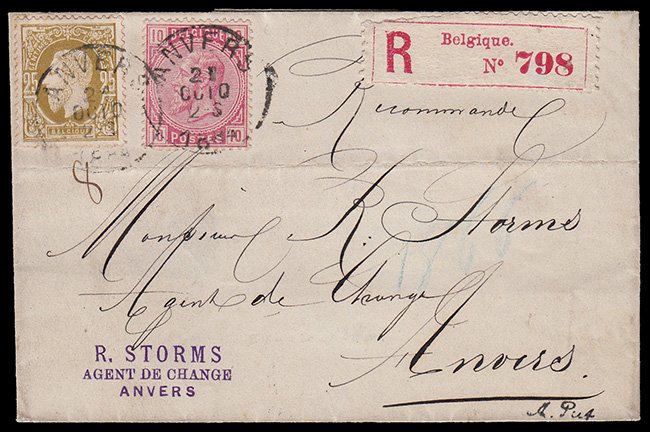 25 25
BELGIQUE
ANVERS
10 Belgique 10
10 Postes 10
ANVERS
21
OCTO
2-S
R
Belgique.
N° 798
Recommandé
8
Monsieur R. Storms
Agent de Change
Anvers.
R. STORMS
AGENT DE CHANGE
ANVERS